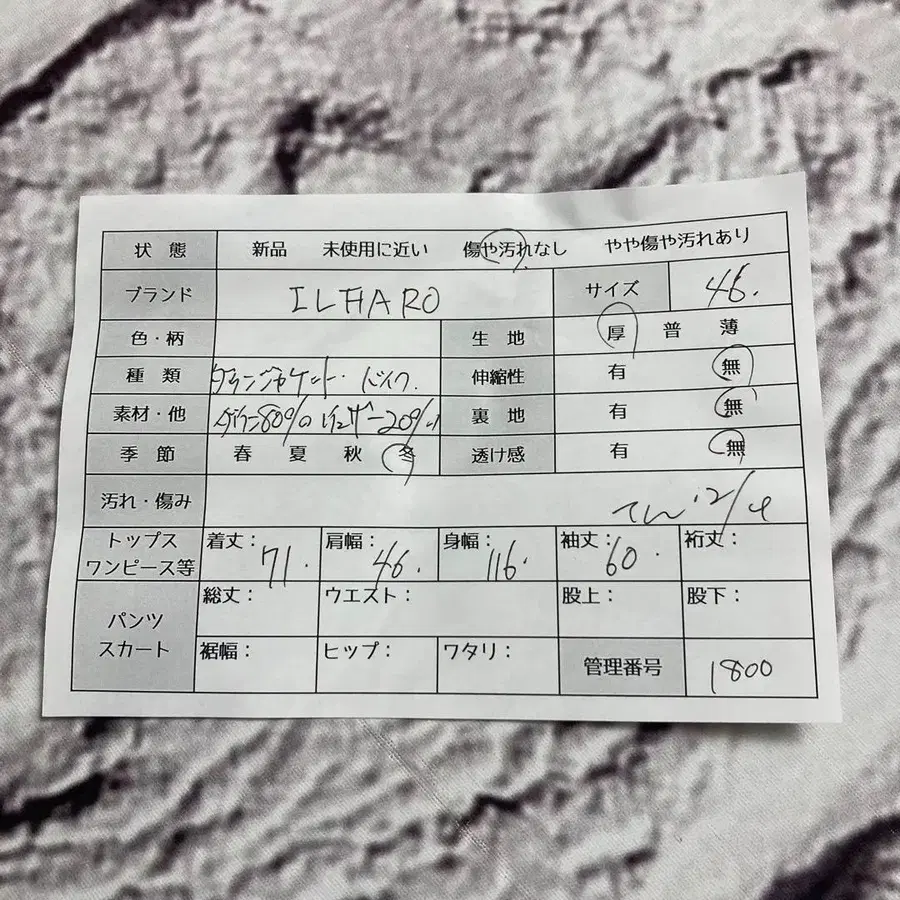 状態 新品 未使用に近い 傷や汚れなし やや傷や汚れあり
ブランド ILFARO サイズ 46.
色・柄 生地 厚 普 薄
種類 ダウンジャケット. 伸縮性 有 無
素材・他 ダウン80% 20% 裏地 有 無
季節 春 夏 秋 冬 透け感 有 無
汚れ・傷み 12/4
トップス ワンピース等 着丈: 71. 肩幅: 46. 身幅: 116. 袖丈: 60. 裄丈:
パンツ スカート 総丈: ウエスト: 股上: 股下:
裾幅: ヒップ: ワタリ: 管理番号 1800